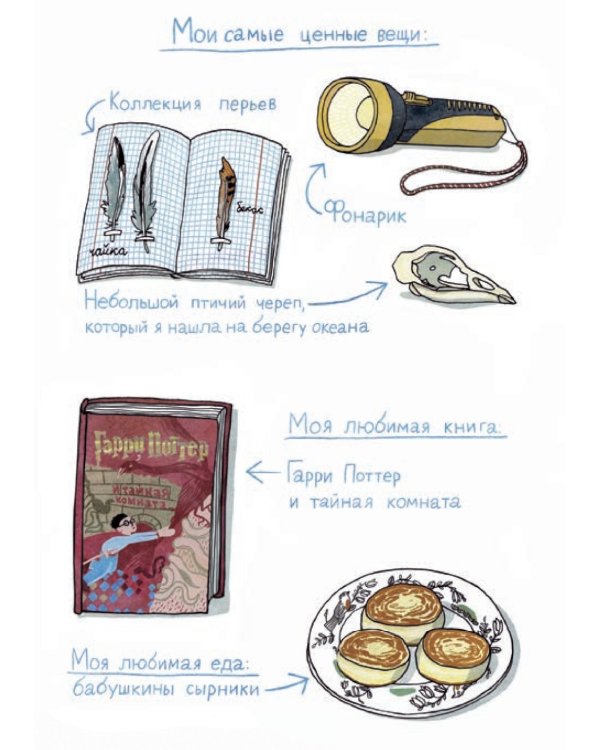 Мои самые ценные вещи:
Коллекция перьев
чайка
бекас
Фонарик
Небольшой птичий череп,
который я нашла на берегу океана
Гарри Поттер
и тайная
комната
Моя любимая книга:
Гарри Поттер
и тайная комната
Моя любимая еда:
бабушкины сырники